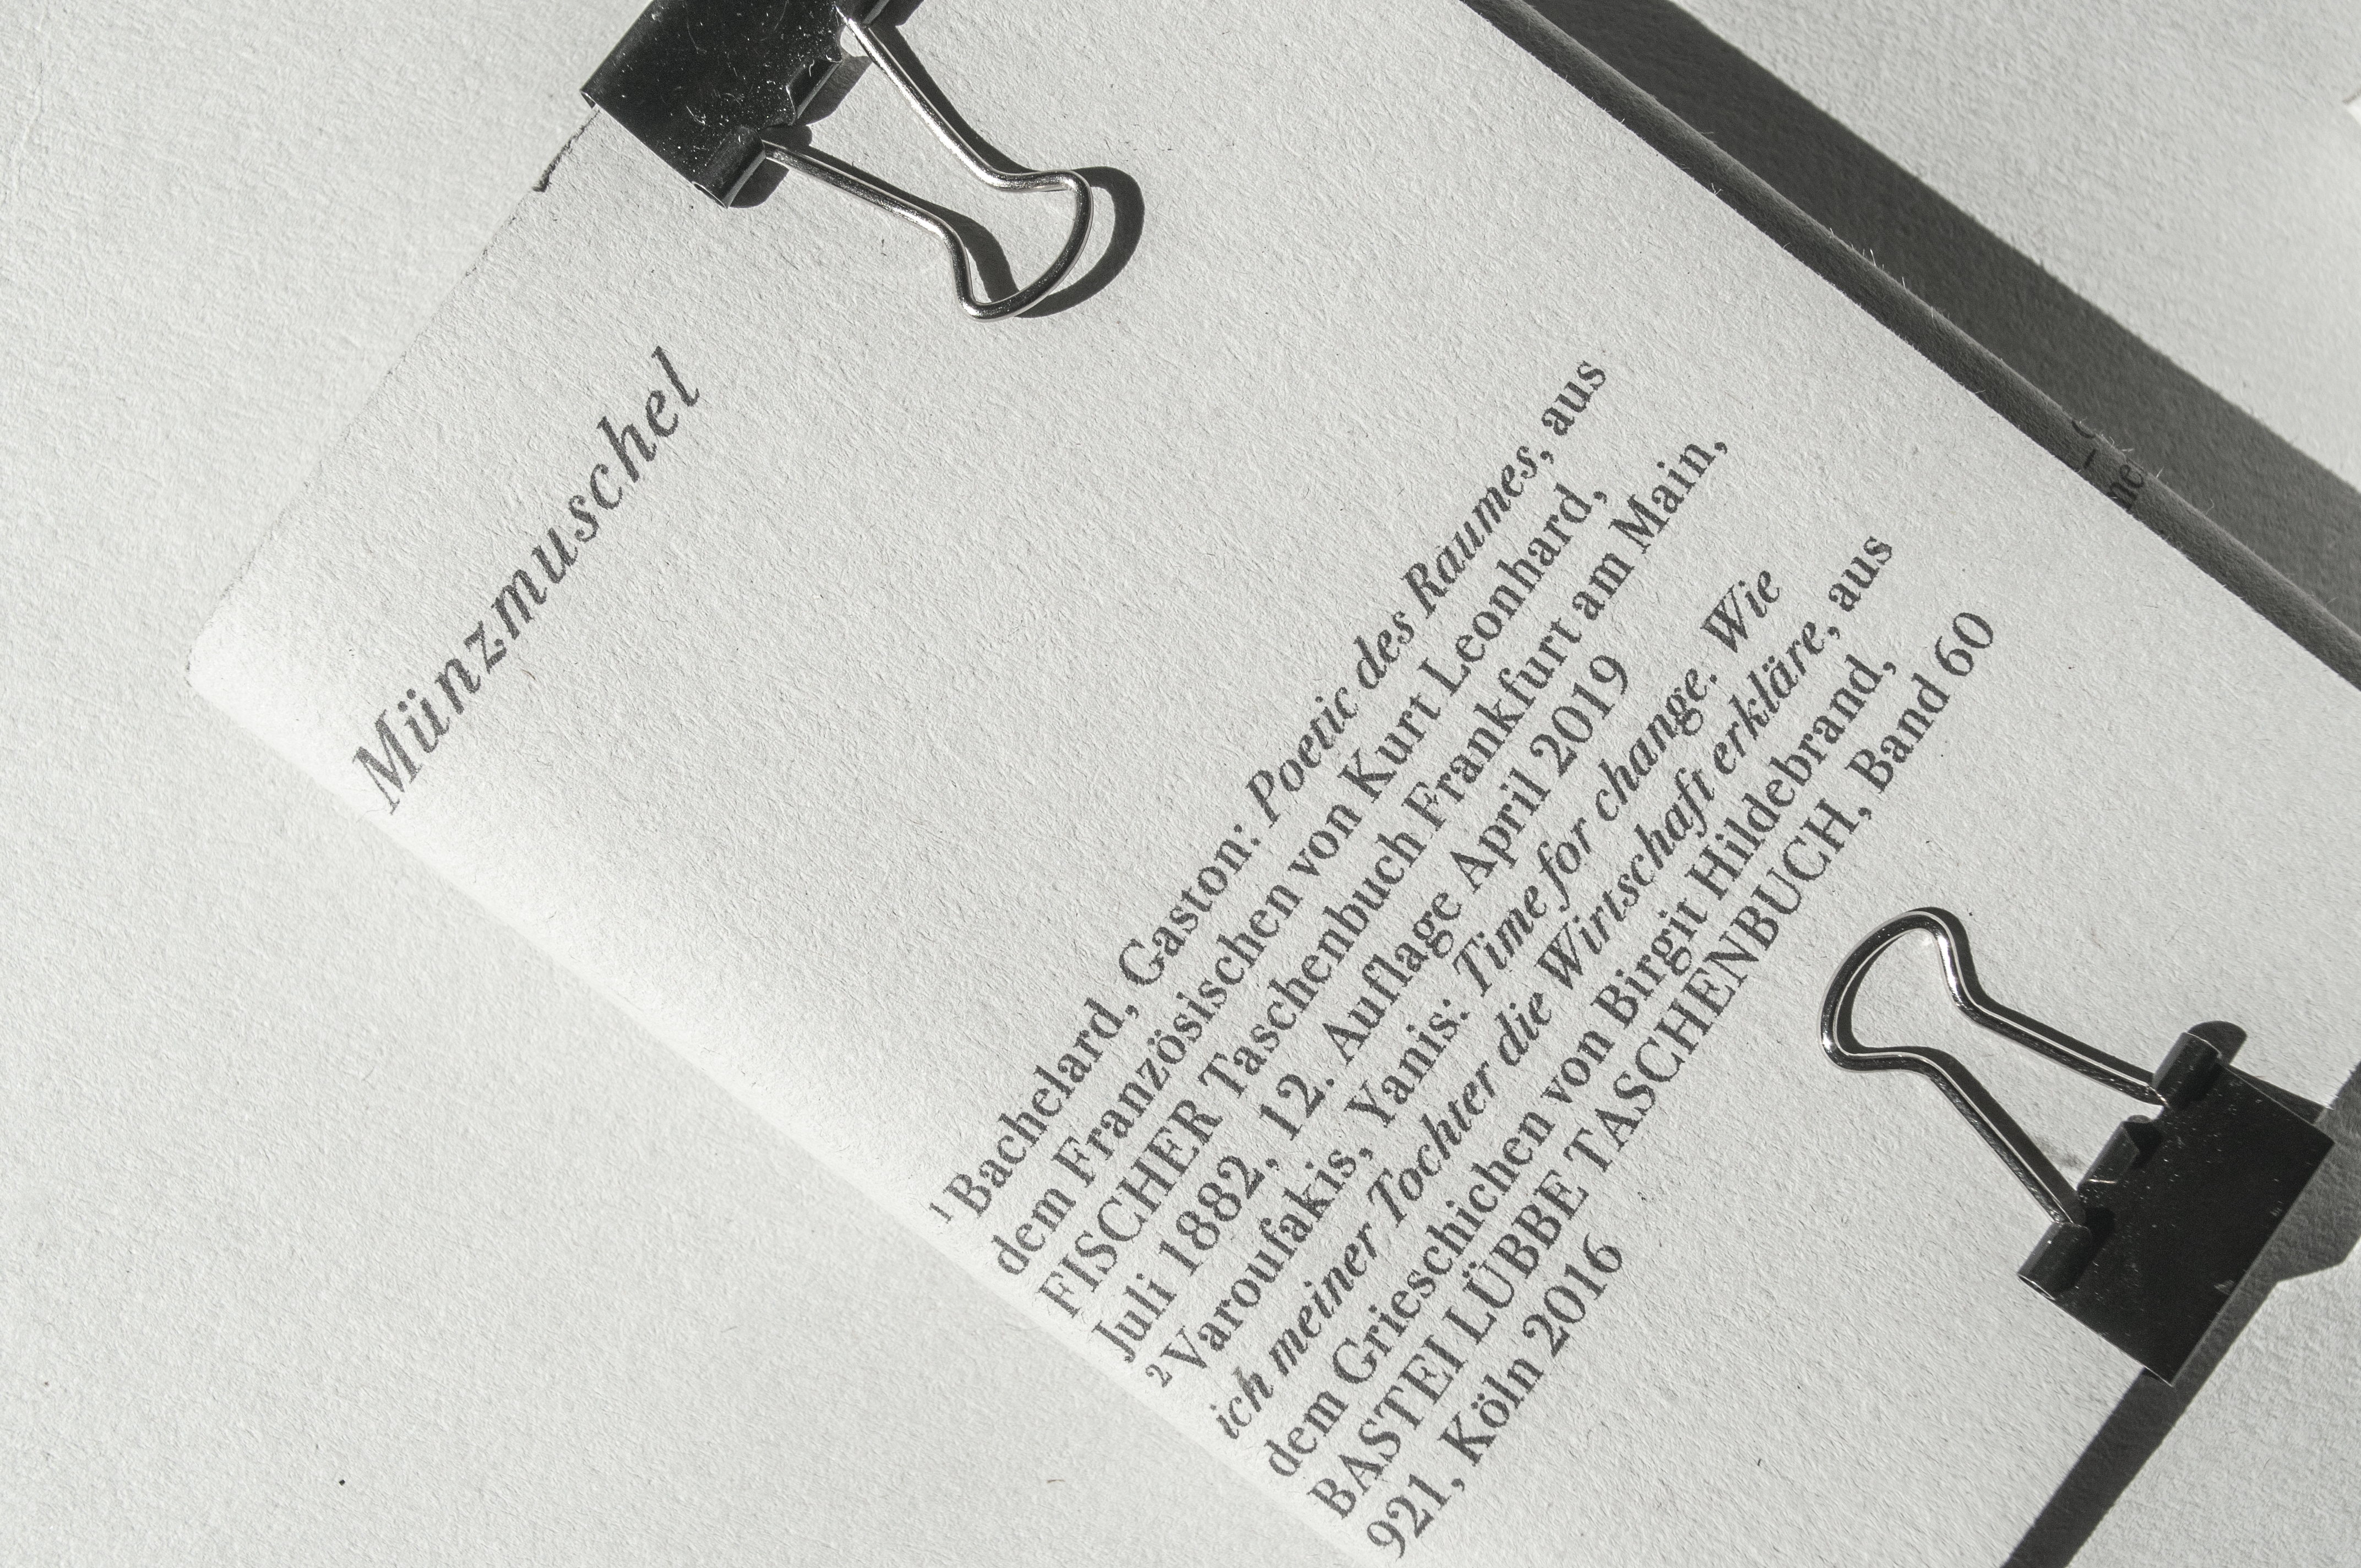 Münzmuschel
¹ Bachelard, Gaston: Poetic des Raumes, aus
dem Französischen von Kurt Leonhard,
FISCHER Taschenbuch Frankfurt am Main,
Juli 1882, 12. Auflage April 2019
² Varoufakis, Yanis: Time for change. Wie
ich meiner Tochter die Wirtschaft erkläre, aus
dem Grieschichen von Birgit Hildebrand,
BASTEI LÜBBE TASCHENBUCH, Band 60
921, Köln 2016